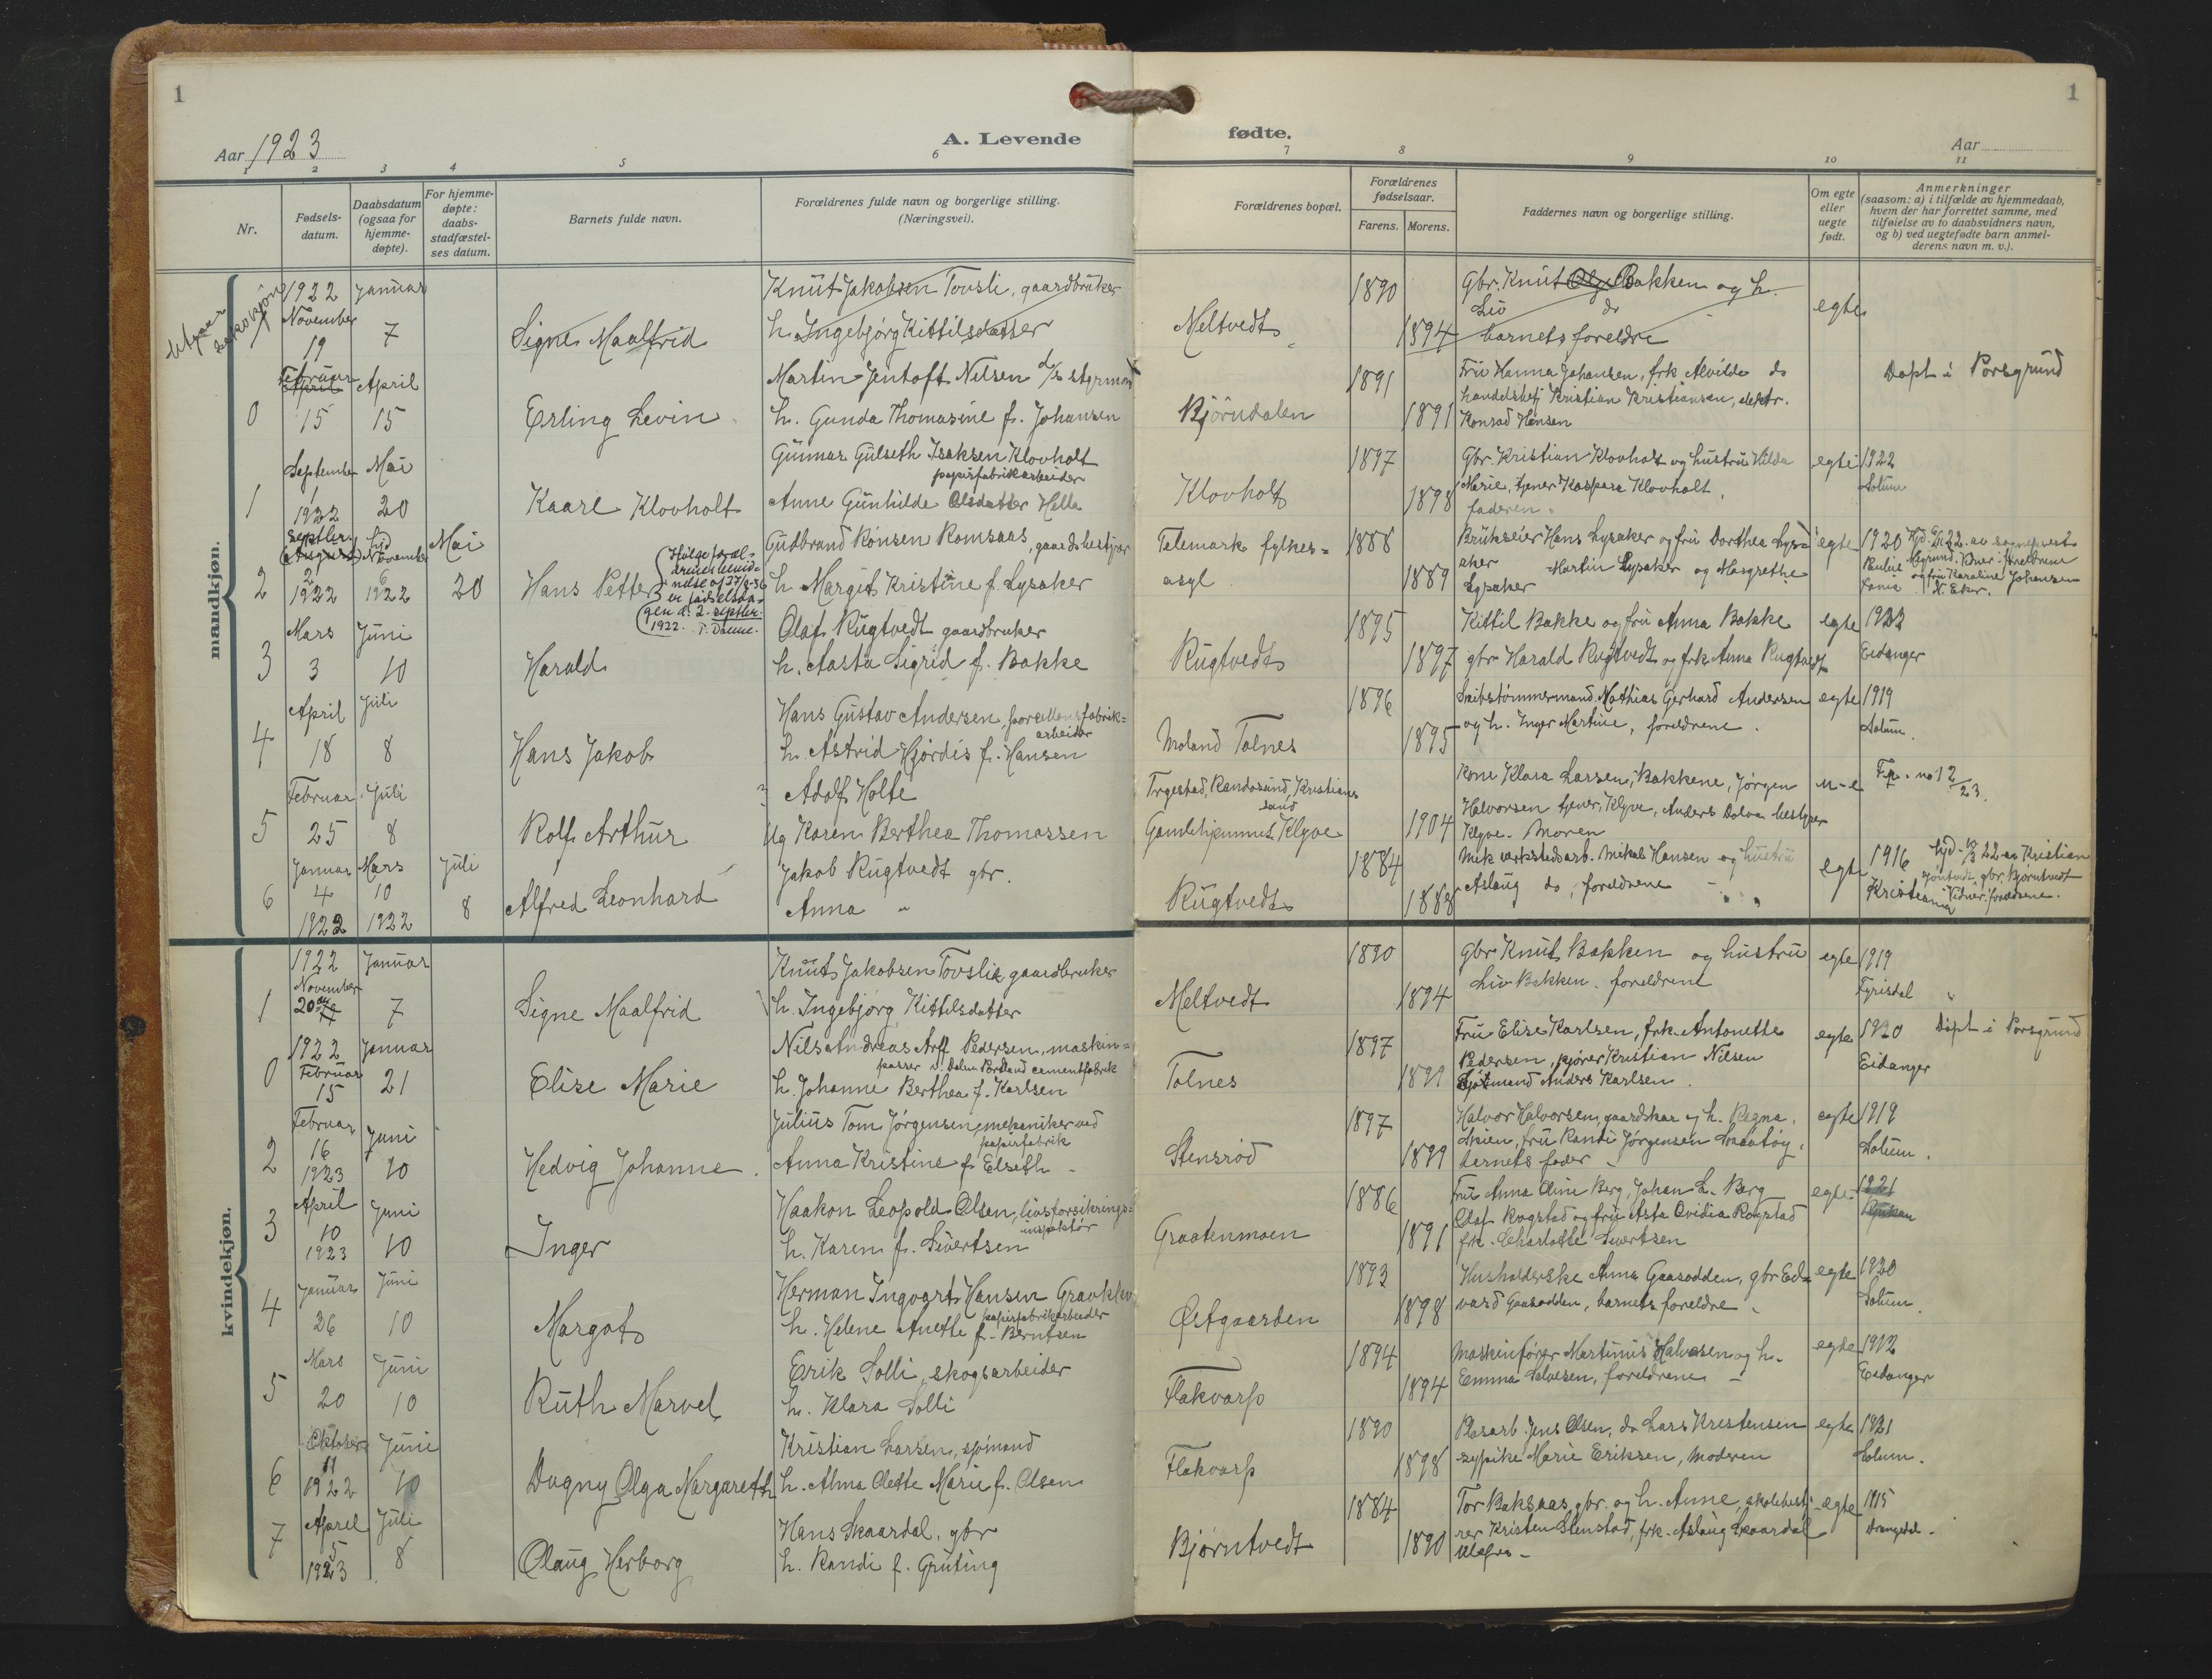 1
1
Aar 1923
A. Levende
fødte.
Aar
1 2 3 4 5 6 7 8 9 10 11
Nr.
Fødsels-
datum.
Daabsdatum
(ogsaa for
hjemme-
døpte).
For hjemme-
døpte:
daabs-
stadfæstel-
ses datum.
Barnets fulde navn.
Forældrenes fulde navn og borgerlige stilling.
(Næringsvei).
Forældrenes bopæl.
Forældrenes
fødselsaar.
Farens. Morens.
Faddernes navn og borgerlige stilling.
Om egte
eller
uegte
født.
Anmerkninger
(saasom: a) i tilfælde av hjemmedaab,
hvem der har forrettet samme, med
tilføielse av to daabsvidners navn,
og b) ved uegtefødte barn anmel-
derens navn m. v.).
mandkjøn.
Utgaar
1922
November
19
Januar
7
Signe Maalfrid
Knut Jakobsen Tovsli, gaardbruker
h. Ingebjørg Kittilsdatter
Meltvedt
1890
1894
Gbr. Knut Bakken og h.
Liv do
barnets foreldre
egte
0
Februar
April
15
April
15
Erling Levin
Martin Jentoft Nilsen d/s styrmand
h. Gunda Thomasine f. Johansen
Bjørndalen
1891
1891
Fru Hanna Johansen, frk Alvilde do
handelsbetj Kristian Kristiansen, elektr.
Konrad Hansen
Døpt i Porsgrund
1
September
1
1922
Mai
20
Kaare Klovholt
Gunnar Gulseth Isaksen Klovholt
papirfabrikarbeider
Anne Gunhilde Olsdatter Hella
Klovholt
1897
1898
Gbr. Kristian Klovholt og hustru Hilda
Marie, tjener Kaspara Klovholt,
faderen
egte
1922
Solum
2
Septbr.
(August)
2
1922
hjd
November
6
1922
Mai
20
Hans Petter
Ifølge foræl-
drenes
er fødselsda-
gen d. 2. septbr.
1922.
Gudbrand Rønsen Romsaas, gaardsbestyrer
h Margit Kristine f. Lysaker
Telemark fylkes=
asyl
1888
1889
Brukseier Hans Lysaker og fru Dorthea Lys=
aker Martin Lysaker og Margrethe
Lysaker
egte
1920
3
Mars
3
Juni
10
Harald
Olaf Rugtvedt gaardbruker
h. Aasta Sigrid f. Bakke
Rugtvedt
1895
1897
Kittil Bakke og fru Anna Bakke
gbr Harald Rugtvedt og frk Anna Rugtvedt
egte
1922
Eidanger
4
April
18
Juli
8
Hans Jakob
Hans Gustav Andersen, porcellensfabrik=
arbeider
h. Astrid Hjørdis f. Hansen
Moland Tolnes
1896
1895
Skibstømmermand Mathias Gerhard Andersen
og h. Inger Martine, foreldrene.
egte
1919
Solum.
5
Februar
25
Juli
8
Rolf Arthur
Adolf Holte
Ug Karen Berthea Thomassen
Randøsund, Kristians
sand
Gamlehjemmet Klyve
1904
Kone Klara Larsen, Bakkene, Jørgen
Halvorsen tjener, Klyve, Anders Dolva bestyrer
Klyve. Moren
u-e
6
Januar
4
1922
Mars
10
1922
Juli
8
Alfred Leonhard
Jakob Rugtvedt gbr.
Anna "
Rugtvedt
1884
1888
Mek verkstedsarb. Mikal Hansen og hustru
Aslaug do, foreldrene
egte
1916
Kristiania
kvindekjøn.
1
1922
November
20
Januar
7
Signe Maalfrid
Knut Jakobsen Tovslie, gaardbruker
h. Ingebjørg Kittelsdatter
Meltvedt
1890
1894
Gbr Knut Bakken og hustru
Liv Bakken. foreldrene
egte
1919
Fyrisdal
0
1922
Februar
15
Januar
21
Elise Marie
Nils Andreas Arff Pedersen, maskin=
passer v. Dalen Portland cementfabrik
h. Johanne Berthea f. Karlsen
Tolnes
1897
1899
Fru Elise Karlsen, frk. Antonette
Pedersen, kjører Kristian Nilsen
Sjømand Anders Karlsen
egte
1920
Eidanger
Døpt i Porsgrund
2
Februar
16
1923
Juni
10
Hedvig Johanne
Julius Tom Jørgensen, mekaniker ved
papirfabrik
Anna Kristine f. Elseth
Stensrød
1897
1899
Halvor Halvorsen, gaardskar og h. Ragna,
Skien, fru Randi Jørgensen
barnets fader
egte
1919
Solum.
3
April
10
1923
Juni
10
Inger
Haakon Leopold Olsen, livsforsikrings=
inspektør
h. Karen f. Sivertsen
Graatenmoen
1886
1891
Fru Anna Oline Berg, Johan L. Berg
Olaf Rogstad og fru Asta Ovidia Rogstad
frk. Charlotte Sivertsen
egte
1921
4
Januar
26
Juni
10
Margot
Herman Ingvart Hansen Gravklev
papirfabrikarbeider
h. Helene Anette f. Berntsen
Østgaarden
1893
1898
Husholderske Anna Gaasodden, gbr Ed=
vard Gaasodden, barnets foreldre
egte
1920
Solum.
5
Mars
20
Juni
10
Ruth Marvel
Erik Solli, skogsarbeider
h. Klara Solli
Flakvarp
1894
1894
Maskinfører Martinus Halvorsen og h.
Emma Salvesen, foreldrene
egte
1912
Eidanger
6
Oktober
11
1922
Juni
10
Dagny Olga Margareth
Kristian Larsen, sjømand
h. Alma Olette Marie f. Olsen
Flakvarp
1890
1898
Plasarb. Jens Olsen, do Lars Kristensen
sypike Marie Eriksen, moderen
egte
1921
Solum.
7
April
5
1923
Juli
8
Olaug Herborg
Hans Skaardal, gbr
h. Randi f. Gruting
Bjørntvedt
1884
1890
Tor Baksaas, gbr. og h. Anne, skolebesty
rer Kristen Stenstad, frk. Aslaug Skaardal
Ulefos
egte
1915
Drangedal